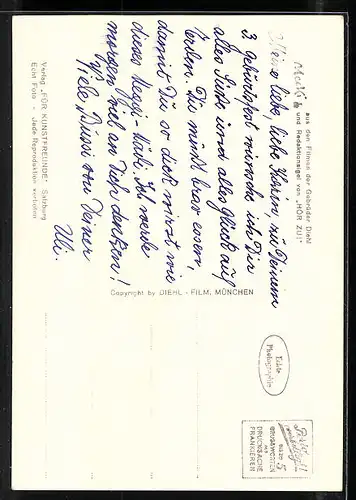 Mecki
aus den Filmen der Gebrüder Diehl
und Redaktionsigel von "HÖR ZU!"
Meine liebe, liebe Karen, zu Deinem
3. Geburtstag wünsche ich Dir
alles Liebe und alles Glück auf
Erden. Du mußt brav essen,
damit Du so dick wirst wie
dieses Mecki-Mädi. Ich werde
morgen viel an Dich denken!
Viele Bussi von Deiner
Uli.
Verlag "FÜR KUNSTFREUNDE" Salzburg
Echt Foto - Jede Reproduktion verboten
Copyright by DIEHL - FILM, MÜNCHEN
Echte
Photographie
5
GRUSSWORTEN
ALS
DRUCKSACHE
FRANKIEREN